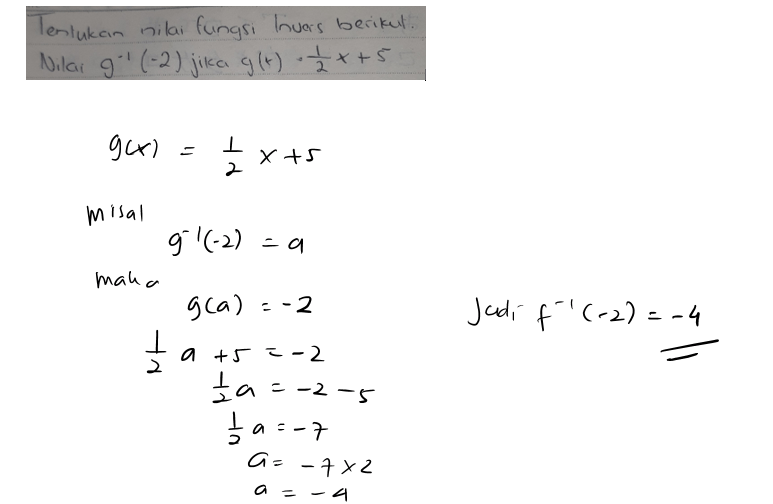 Tentukan nilai fungsi Invers berikut.
Nilai g⁻¹(-2) jika g(x) = 1/2 x + 5
g(x) = 1/2 x + 5
misal
g⁻¹(-2) = a
maka
g(a) = -2
1/2 a + 5 = -2
1/2 a = -2 - 5
1/2 a = -7
a = -7 x 2
a = -4
Jadi f⁻¹(-2) = -4